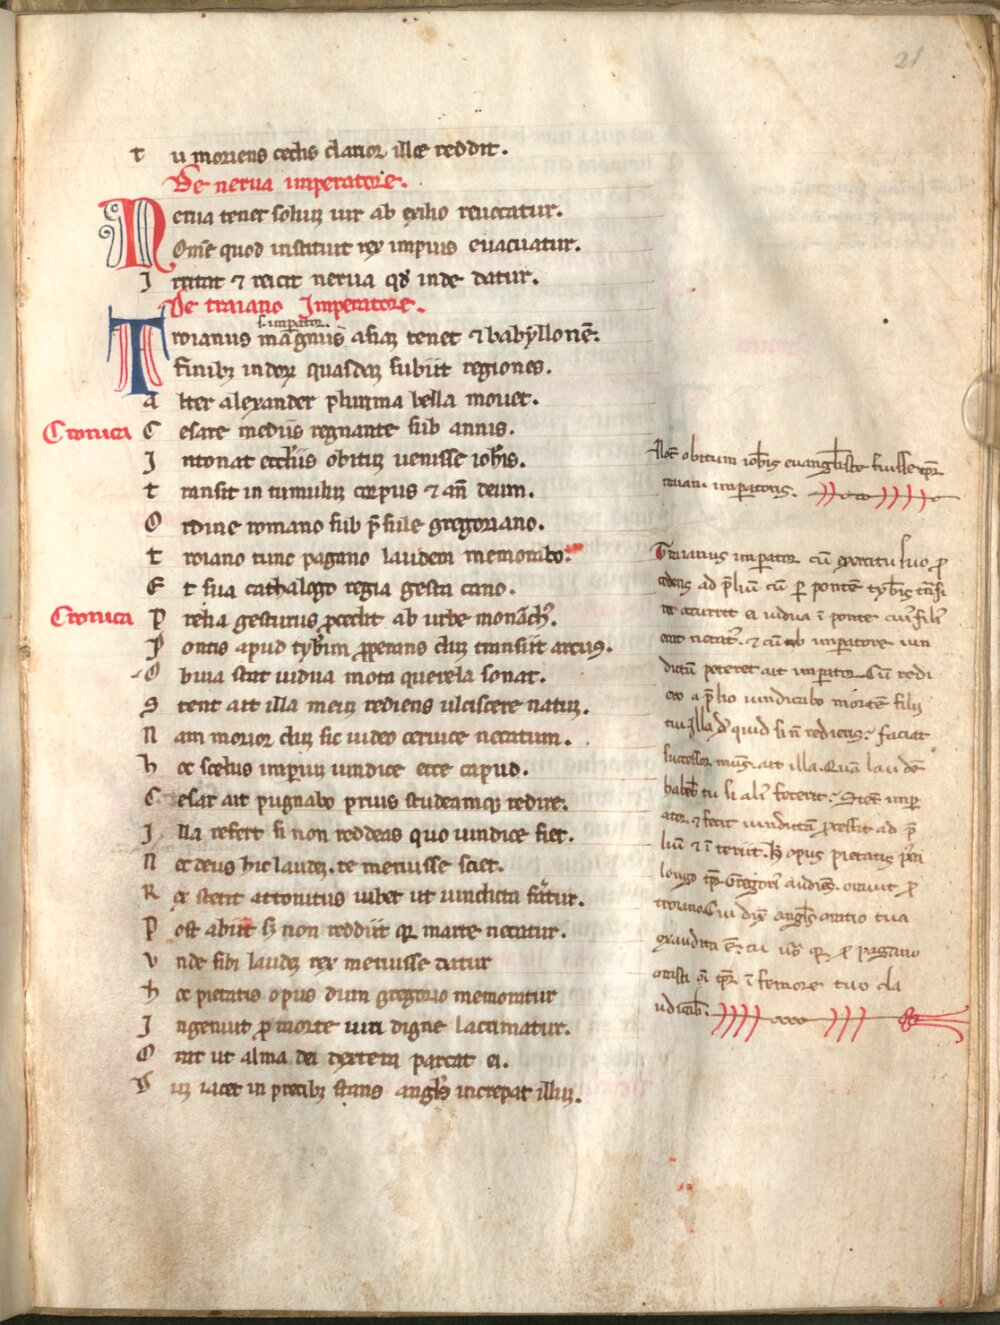 21
tu moriens cechis clamor ille reddit.
De nerua imperatore.
Nerua tenet solium uir ab exilio reuocatur.
Om̄e quod instituit rex impius euacuatur.
Irritat ⁊ reicit nerua qd̄ inde datur.
De traiano Imperatore.
s. imperator.
Troianus magnus asiaꝫ tenet ⁊ babyllonē:
finibꝫ indoꝝ quasdaꝫ subiit regiones.
alter alexander plurima bella mouet.
Cronica Cesare mediis regnante sub annis.
Intonat eccłiis obituꝫ uenisse ioh̄is.
transit in tumuluꝫ corpus ⁊ an̄ deum.
Ordine romano sub p̄sule gregoriano.
troiano tunc pagano laudem memorabo:
Et sua cathalogo regia gesta cano.
Cronica Prelia gesturus p̱cedit ab urbe monarch̄.
Pontis apud tyb̄im p̱perans cituꝫ transiit arcus.
Obuia stat uidua mota querela sonat.
Stent ait illa meuꝫ rediens ulciscere natuꝫ.
nam morior cituꝫ sic uideo ceruice necatum.
hoc scelus imperii uindice ecce capud.
Cesar ait pugnabo prius studeamqꝫ redire.
Illa refert si non reddeas quo uindice fiet.
nec deus hic laudeꝫ te meruisse sciet.
Rex stetit attonitus iubet ut uindicta feratur.
Post abiit sꝫ non reddiit qꝛ marte necatur.
vnde sibi laudeꝫ rex meruisse datur
hoc pietatis opus dum gregorio memoratur
Ingemuit p̱ morte uiri digne lacrimatur.
Orat ut alma dei dextera parcat ei.
Duꝫ iacet in precibꝫ stans angl̄s increpat illuꝫ.
Not̄ obitum ioh̄is euangliste fuisse tp̄r
traiani imperatoris.
Traianus imperator cū exercitu suo p̱
cedens ad p̄liū cū per pontē tyb̄is trāsi
ret occurrit ei uidua ī ponte cui' fili'
erat necat'. ⁊ cū ab imperatore uin
dictā peteret ait imperator. Cū redi
ero a p̄lio uindicabo mortē filij
tui. Illa d̄r quid si n̄ rediens: faciat
successor meus. ait illa. Quā laudē
habeb̄ tu si ali' fecerit: Stetit imper
ator. ⁊ fecit uindictā p̱cessit ad p̄
liū ⁊ īteriit. H̄ opus pietatis post
longo tp̄r Gregori' audiens. orauit p̱
troiano. Cui dix̄ angl̄s oratio tua
exaudita ē: tu uero qꝛ p̱ pagano
orasti oī tp̄r ī femore tuo cla
udicab̄.